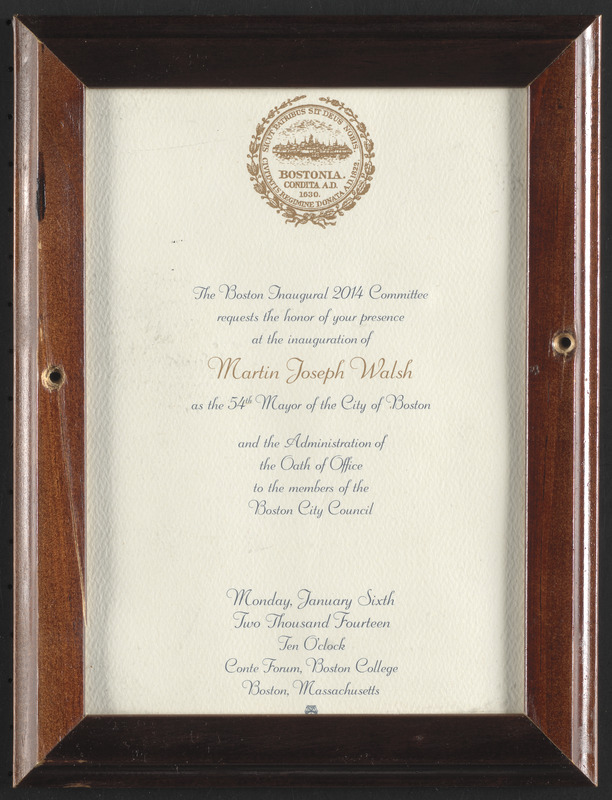 SICUT PATRIBUS SIT DEUS NOBIS
BOSTONIA.
CONDITA A.D.
1630.
CIVITATIS REGIMINE DONATA A.D. 1822.
The Boston Inaugural 2014 Committee
requests the honor of your presence
at the inauguration of
Martin Joseph Walsh
as the 54th Mayor of the City of Boston
and the Administration of
the Oath of Office
to the members of the
Boston City Council
Monday, January Sixth
Two Thousand Fourteen
Ten O'clock
Conte Forum, Boston College
Boston, Massachusetts